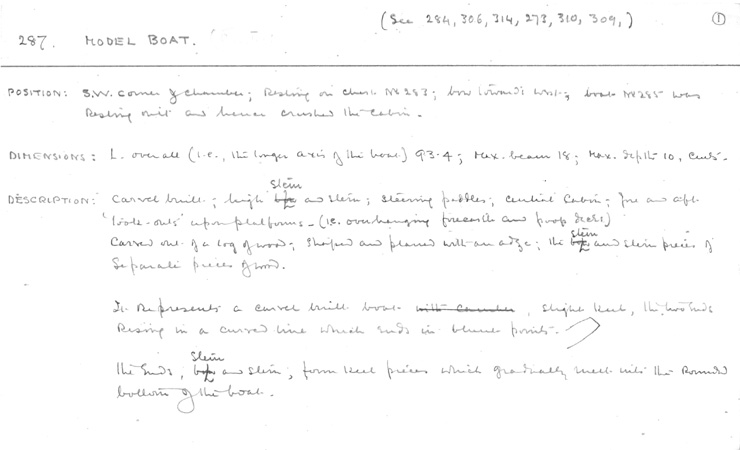 (See 284, 306, 314, 273, 310, 309,) ①
287. MODEL BOAT.
POSITION: S.W. corner of chamber; Resting on chest No 283; bow towards west; boat No 285 was
Resting on it and hence crushed the cabin.
DIMENSIONS: L. over all (i.e., the longer axis of the boat) 93.4; Max. beam 18; Max. depth 10, cents.
DESCRIPTION: Carvel built; high Stem and stern; steering paddles; central cabin; fore and aft
'look-outs' upon platforms - (i.e. overhanging forecastle and poop decks)
Carved out of a log of wood; shaped and planed with an adze; the Stem and stern pieces of
Separate pieces of wood.
It Represents a carvel built boat with camber, slight keel, the two ends
Rising in a curved line which ends in blunt points.
The Ends, Stem and stern, form keel pieces which gradually melt into the Rounded
bottom of the boat.